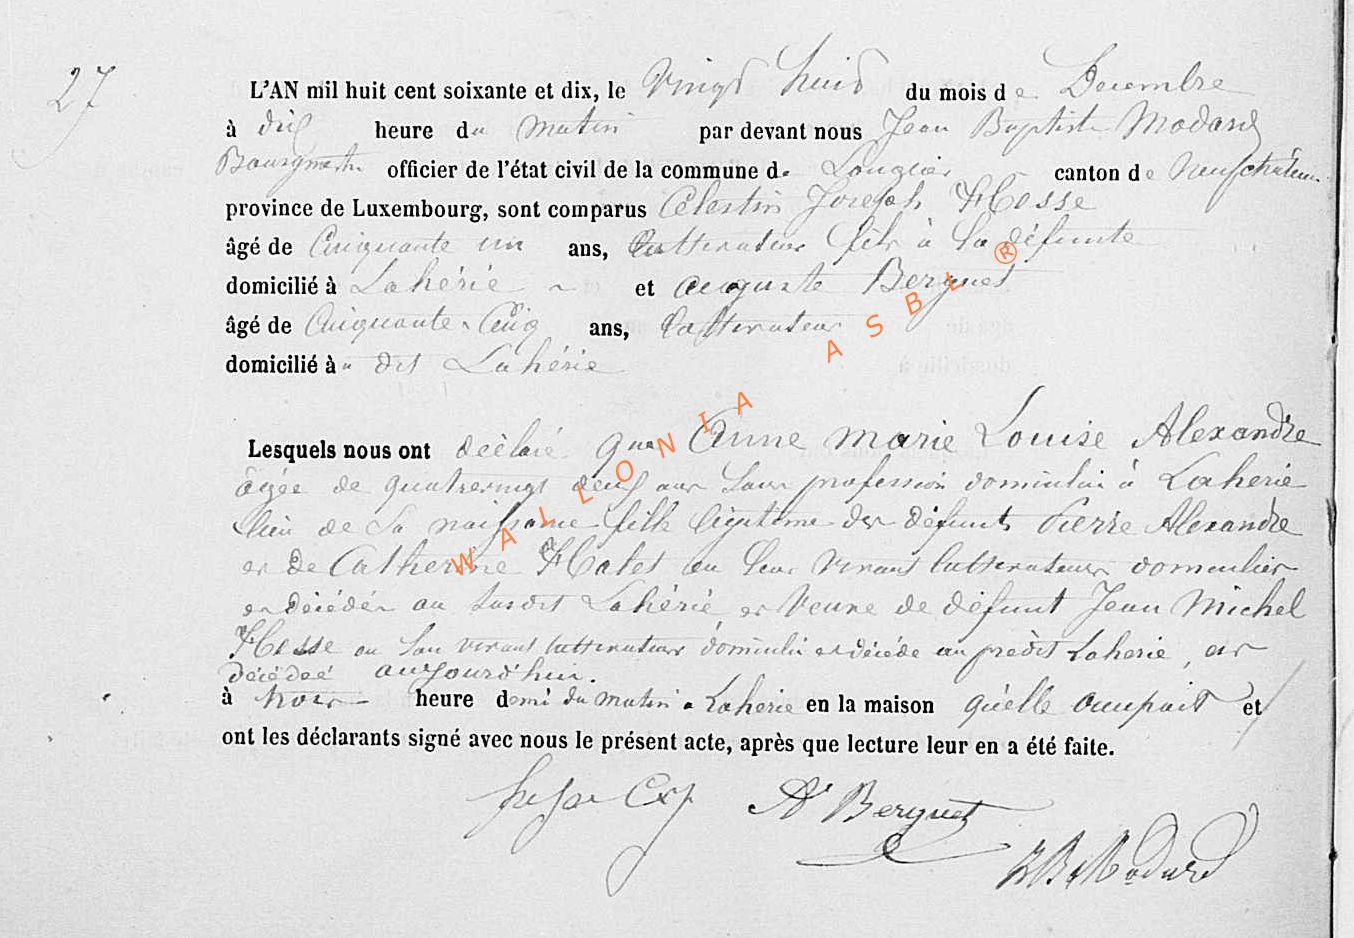 27
L'AN mil huit cent soixante et dix, le Vingt huit du mois de Decembre
à dix heure du matin par devant nous Jean Baptiste Modard
Bourgmestre officier de l'état civil de la commune de Longlier canton de Neufchâteau
province de Luxembourg, sont comparus Célestin Joseph Hesse
âgé de Cinquante un ans, Cultivateur fils à la défunte
domicilié à Lahérie et Auguste Berguet
âgé de Cinquante Cinq ans, Cultivateur
domicilié au dit Lahérie
Lesquels nous ont déclaré que Anne Marie Louise Alexandre
âgée de quatrevingt deux ans sans profession domiciliée à Laherie
lieu de sa naissance fille légitime des défunts Pierre Alexandre
et de Catherine en leur vivant cultivateurs domiciliés
et décédés au susdit Lahérie et Veuve de défunt Jean Michel
Hesse en son vivant cultivateur domicilié et décédé au prédit Laherie, est
décédée aujourd'hui.
à trois heure demi du matin à Laherie en la maison qu'elle occupait et
ont les déclarants signé avec nous le présent acte, après que lecture leur en a été faite.
Ar Berguet
JB Modard
WALLONIA ASBL ®